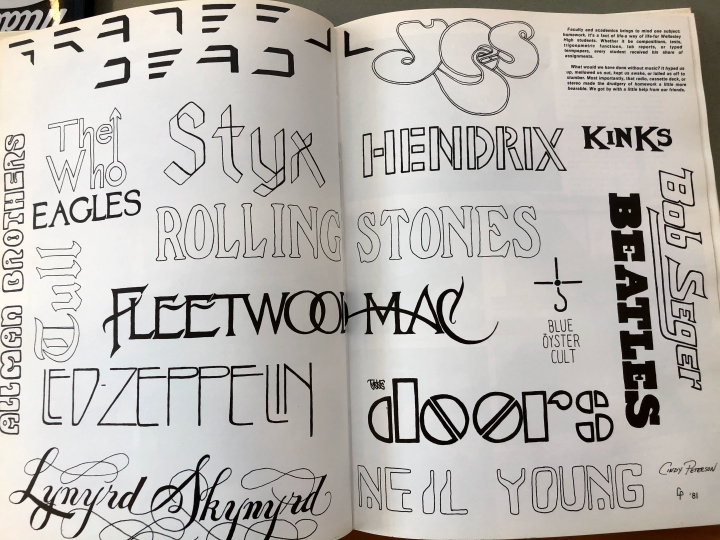 GRATEFUL
DEAD
yes
Faculty and academics brings to mind one subject:
homework. It's a fact of life-a way of life-for Wellesley
High students. Whether it be compositions, tests,
trigonometric functions, lab reports, or typed
termpapers, every student received his share of
assignments.
What would we have done without music? It hyped us
up, mellowed us out, kept us awake, or lulled us off to
slumber. Most importantly, that radio, cassette deck, or
stereo made the drudgery of homework a little more
bearable. We got by with a little help from our friends.
The
Who
Styx
HENDRIX
KINKS
ALLMAN BROTHERS
EAGLES
ROLLING STONES
BEATLES
Bob Seger
Tull
FLEETWOOD MAC
BLUE
ÖYSTER
CULT
LED-ZEPPELIN
THE
doors
Lynyrd Skynyrd
NEIL YOUNG
CINDY PETERSON
CP '81